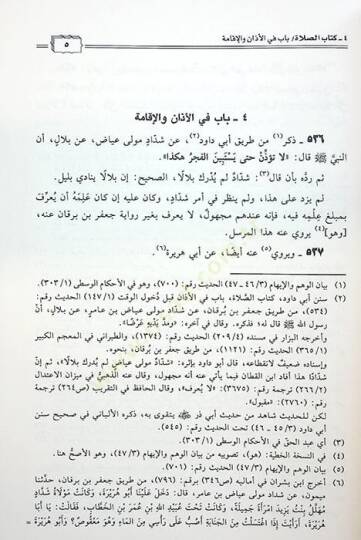 ٤ ـ كتاب الصلاة/ باب في الأذان والإقامة
٥
٤ ـ باب في الأذان والإقامة
٥٣٦ ـ ذكر(١) من طريق أبي داود(٢)، عن شدّاد مولى عياض، عن بلال، أن
النبيَّ ﷺ قال: «لا تؤذِّن حتى يَسْتَبِينَ الفجرُ هكذا».
ثم ردَّه بأن قال(٣): شدّادٌ لم يُدرك بلالًا، الصحيح: إن بلالًا ينادي بليل.
لم يزد على هذا، ولم ينظر في أمر شدّادٍ، وكان عليه إن كان عَلِمَهُ أن يُعرِّف
بمبلغ عِلْمِه فيه، فإنه عندهم مجهولٌ، لا يعرف بغير رواية جعفر بن برقان عنه،
[وهو](٤) يروي عنه هذا المرسل.
٥٣٧ ـ ويروي(٥) عنه أيضًا، عن أبي هريرة(٦).
(١) بيان الوهم والإيهام (٣/ ٤٦ ـ ٤٧) الحديث رقم: (٧٠٠)، وهو في الأحكام الوسطى (١/ ٣٠٣).
(٢) سنن أبي داود، كتاب الصَّلاة، باب في الأذان قبل دُخول الوقت (١/ ١٤٧) الحديث رقم:
(٥٣٤)، من طريق جعفر بن بُرقان، عن شدّادٍ مولى عياض بن عامرٍ، عن بلالٍ، أنَّ
رسول الله ﷺ قال له؛ فذكره. وقال في آخره: «ومدَّ يَدَيْهِ عَرْضًا».
وأخرجه البزار في مسنده (٤/ ٢٠٩) الحديث رقم: والطبراني في المعجم الكبير
(١/ ٣٦٥) الحديث رقم: (١١٢١)، من طريق جعفر بن بُرقان، بنحوه.
وإسناده ضعيفٌ لانقطاعه، قال أبو داود بإثره: «شدّادٌ مولى عياضٍ لم يُدرك بلالًا»، ثم إنّ
شدّادًا هذا أفاد ابن القطان فيما يأتي عنه أنه مجهول، وقال عنه الذَّهبيُّ في ميزان الاعتدال
(٢/ ٢٦٦) ترجمة رقم: (٣٦٧٥): «لا يُعرف»، وقال الحافظ في التقريب (ص٢٦٤) ترجمة
رقم: (٢٧٦٠): «مقبول».
لكن للحديث شاهد من حديث أبي ذر يتقوى به، ذكره الألباني في صحيح سنن
أبي داود (٣/ ٤٥ ـ ٤٦) تحت الحديث رقم: (٥٤٥).
(٣) أي عبد الحقِّ في الأحكام الوسطى (١/ ٣٠٣).
(٤) في النسخة الخطية: (هو)، تصويبه من بيان الوهم والإيهام (٣/ ٤٧)، وهو الأصحُّ هنا.
(٥) بيان الوهم والإيهام (٣/ ٤٧) الحديث رقم: (٧٠١).
(٦) أخرج ابن بشران في أماليه (ص٣٤٦) برقم: (٧٩٦)، من طريق جعفر بن برقان، حدَّثنا
ميمون، عن شداد مولى عياض بن عامر، قال: دَخَلَ عَلَيْنَا أَبُو هُرَيْرَةَ، وَكَانَتْ مَوْلَاةُ شَدَّادٍ
بِنْتَ يَزِيدَ امْرَأَةً جَمِيلَةً، وَكَانَتْ تَحْتَ عَبْدِ اللهِ بْنِ عُمَرَ بْنِ الْخَطَّابِ، فَقَالَتْ: يَا أَبَا
هُرَيْرَةَ، أَرَأَيْتَ إِذَا اغْتَسَلْتُ مِنَ الْجَنَابَةِ أَصُبُّ عَلَى رَأْسِي مِنَ الْمَاءِ وَهُوَ مَعْقُوصٌ؟ وَأَبُو هُرَيْرَةَ =